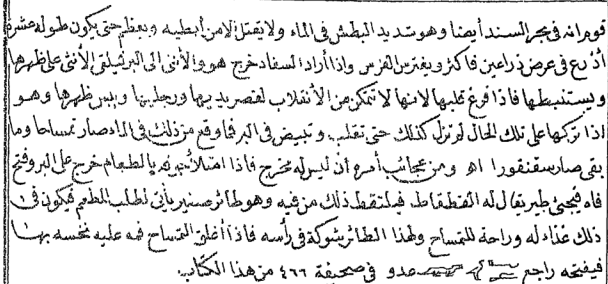 قوم انه فى بحر السند أيضا وهو شديد البطش فى الماء ولا يقتل الا من أبطيه ويعظم حتى يكون طوله عشرة
أذرع فى عرض ذراعين فأكثر ويفترس الفرس واذا أراد السفاد خرج هو والأنثى الى البر فيلقى الأنثى على ظهرها
ويستبطنها فاذا فرغ قلبها لانها لا تتمكن من الأنقلاب لقصر يديها ورجليها ويبس ظهرها وهو
اذا تركها على تلك الحال لم تزل كذلك حتى تقلب وتبيض فى البر فما وقع من ذلك فى الماء صار تمساحا وما
بقى صار سقنقورا اه ومن عجائب أمره أن ليس له مخرج فاذا امتلأ جوفه بالطعام خرج على البر وفتح
فاه فيجئ طير يقال له القطقاط فيلتقط ذلك من فيه وهو طائر صغير يأتى لطلب الطعم فيكون فى
ذلك غذاء له وراحة للتمساح ولهذا الطائر شوكة فى رأسه فاذا أغلق التمساح فمه عليه نخسه بها
فيفتحه راجع عدو فى صحيفة ٤٦٦ من هذا الكتاب